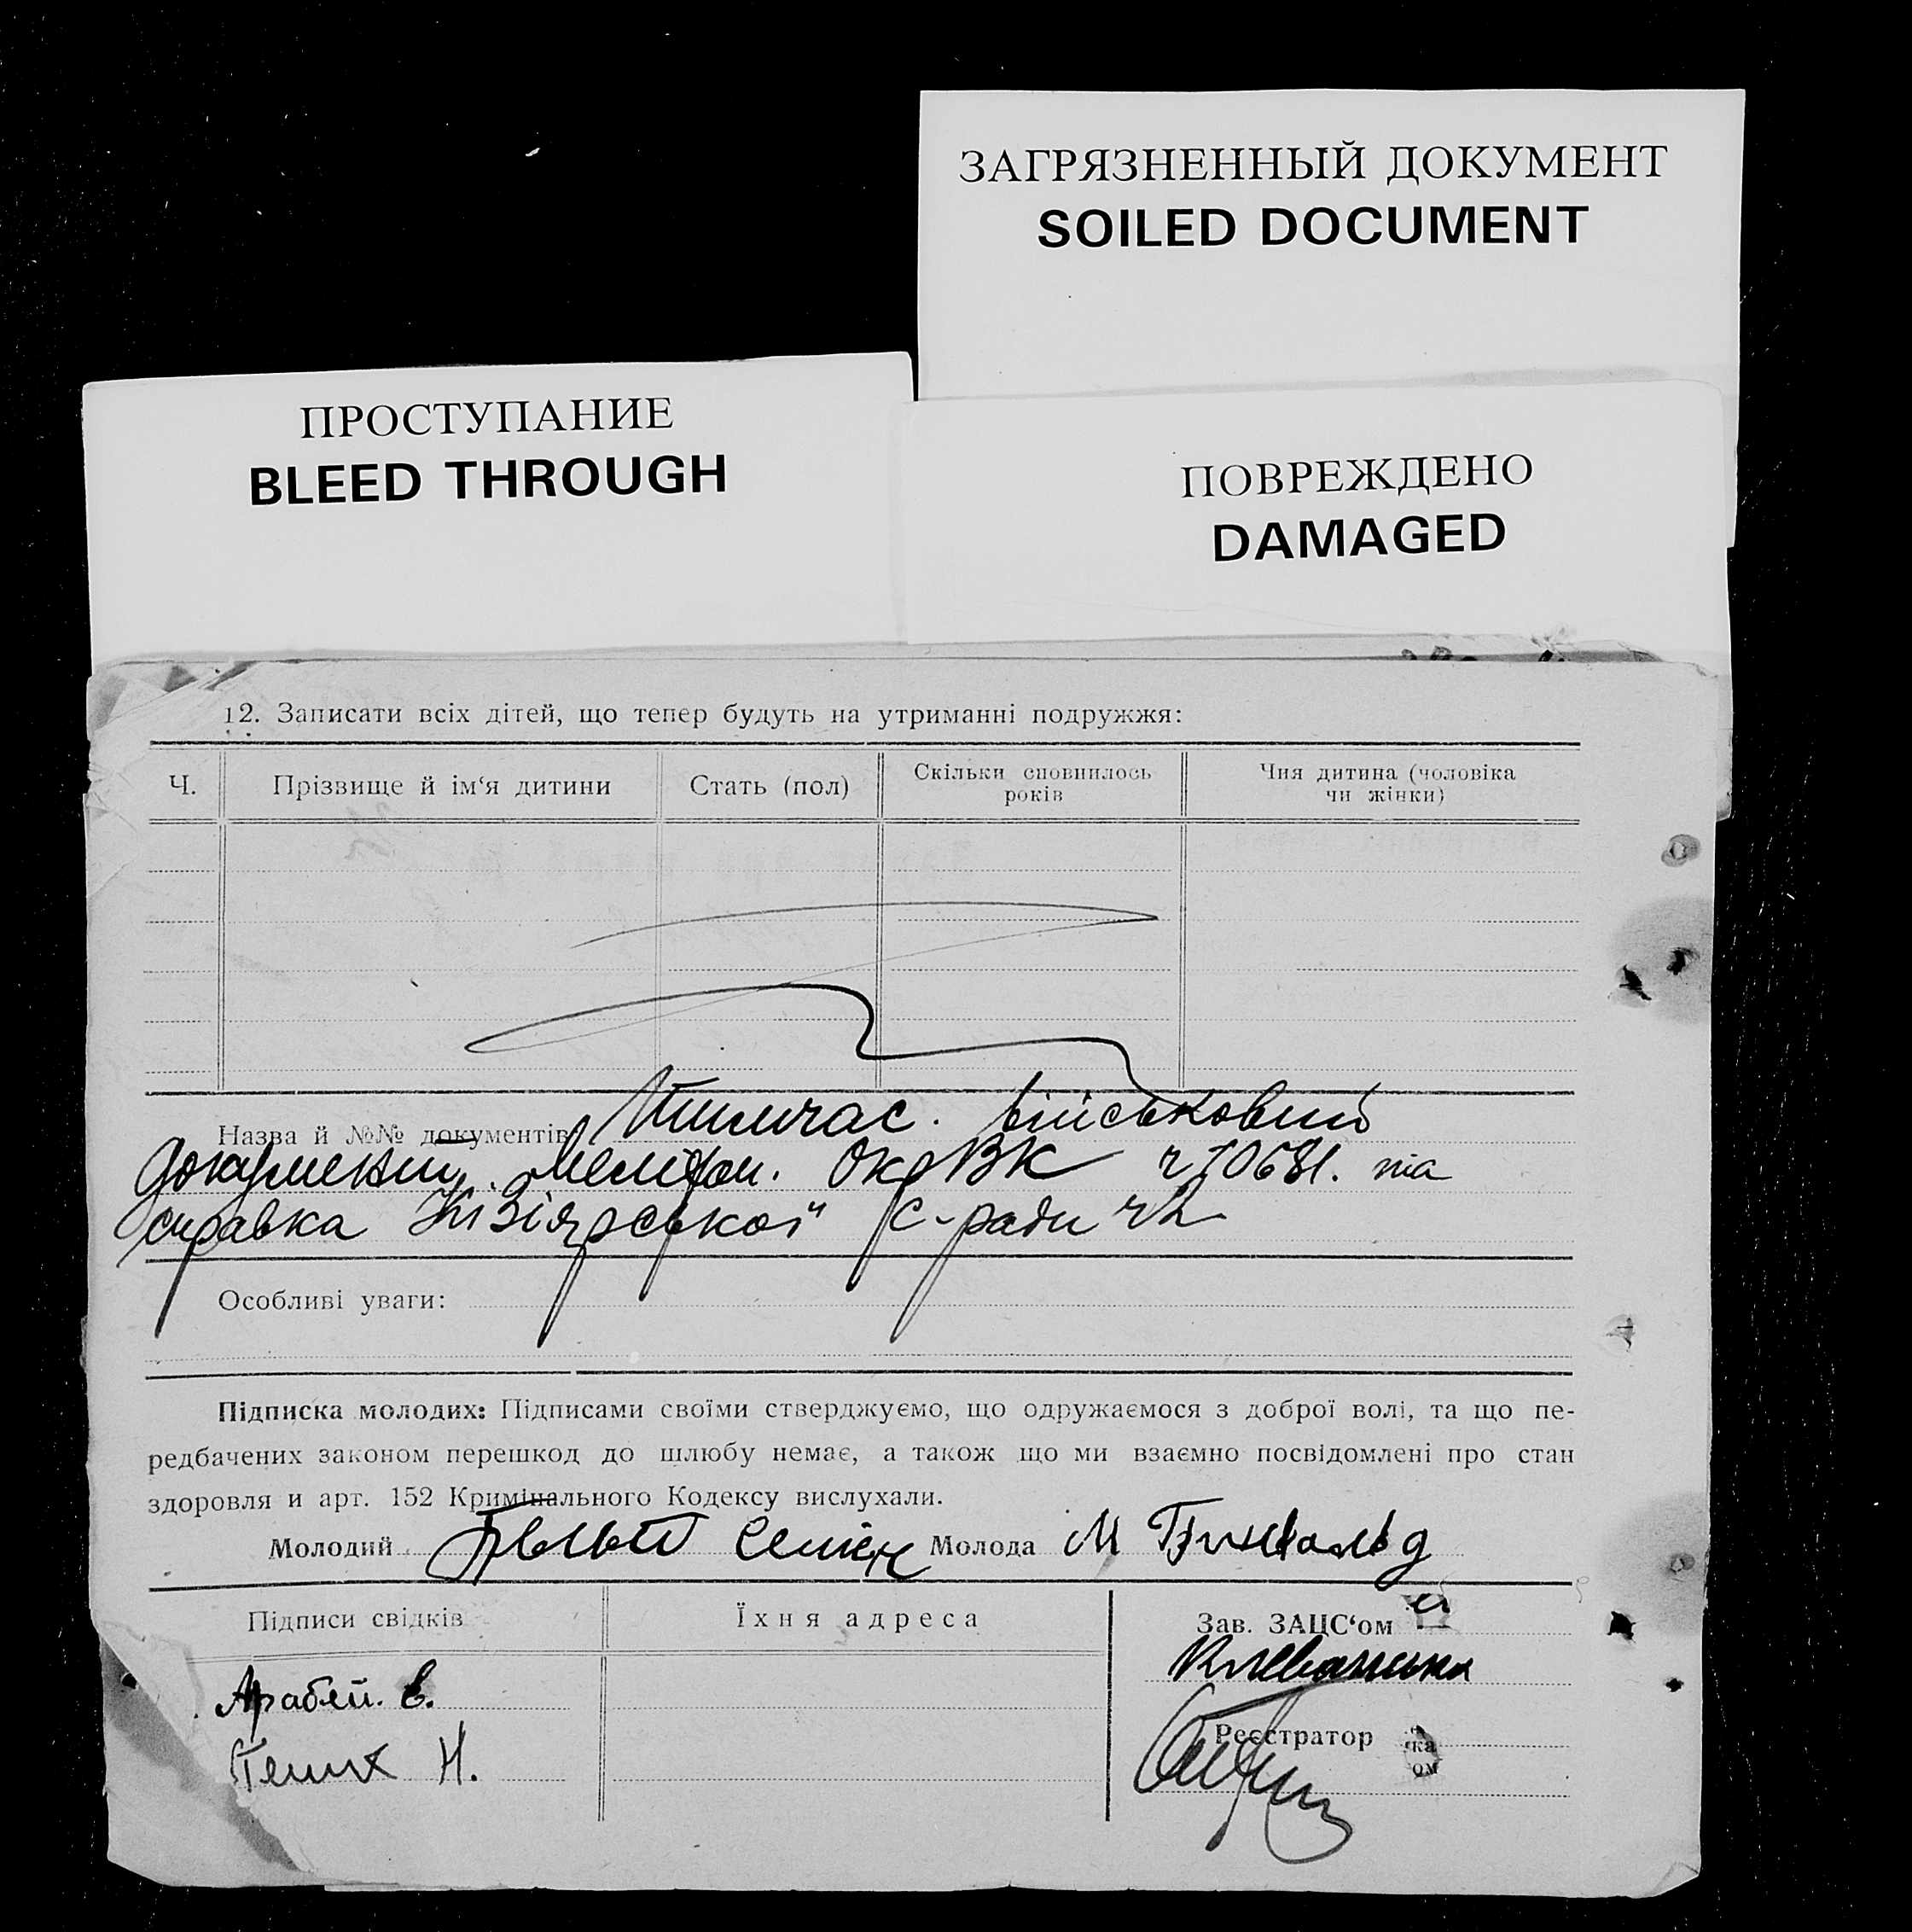 ЗАГРЯЗНЕННЫЙ ДОКУМЕНТ
SOILED DOCUMENT
ПРОСТУПАНИЕ
BLEED THROUGH
ПОВРЕЖДЕНО
DAMAGED
12. Записати всіх дітей, що тепер будуть на утриманні подружжя:
Ч.
Прізвище й ім‘я дитини
Стать (пол)
Скільки сповнилось
років
Чия дитина (чоловіка
чи жінки)
Назва й №№ документів Тимчас. військовий
документ. Меліто. ОкрВК ч 70681. та
справка Кізіярської с-ради ч 2
Особливі уваги:
Підписка молодих: Підписами своїми стверджуємо, що одружаємося з доброї волі, та що пе-
редбачених законом перешкод до шлюбу немає, а також що ми взаємно посвідомлені про стан
здоровля и арт. 152 Кримінального Кодексу вислухали.
Молодий
Молода М
Підписи свідків
Їхня адреса
Зав. ЗАЦС‘ом
Арабей. Е.
Н.
Реєстратор
ка
ом